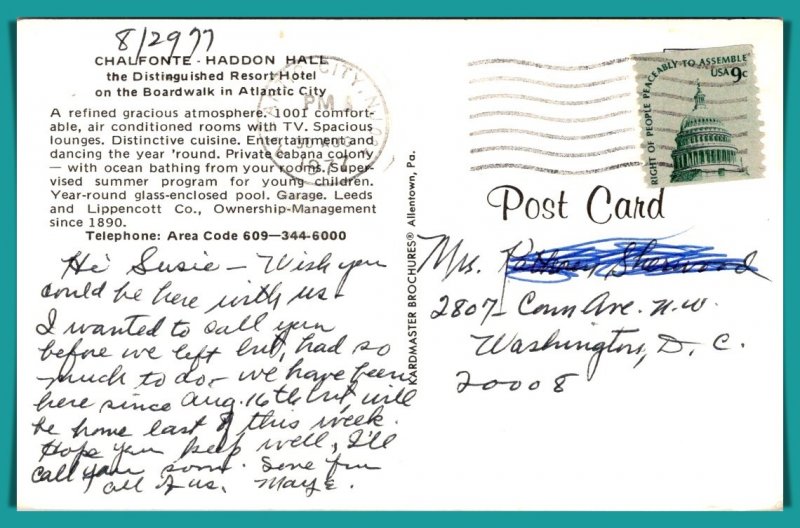 8/29 77
CHALFONTE - HADDON HALL
the Distinguished Resort Hotel
on the Boardwalk in Atlantic City
A refined gracious atmosphere. 1001 comfort-
able, air conditioned rooms with TV. Spacious
lounges. Distinctive cuisine. Entertainment and
dancing the year 'round. Private cabana colony
— with ocean bathing from your rooms. Super-
vised summer program for young children.
Year-round glass-enclosed pool. Garage. Leeds
and Lippencott Co., Ownership-Management
since 1890.
Telephone: Area Code 609—344-6000
Hi Susie – Wish you
could be here with us
I wanted to call you
before we left but, had so
much to do – we have been
here since Aug. 16th but will
be home last of this week.
Hope you keep well, I'll
call you soon. Love from
all of us. Mary E.
KARDMASTER BROCHURES® Allentown, Pa.
ATLANTIC CITY, N.J.
PM
AUG
1977
RIGHT OF PEOPLE PEACEABLY TO ASSEMBLE
USA 9c
Post Card
Mrs.
2807 – Conn Ave. N.W.
Washington, D.C.
20008